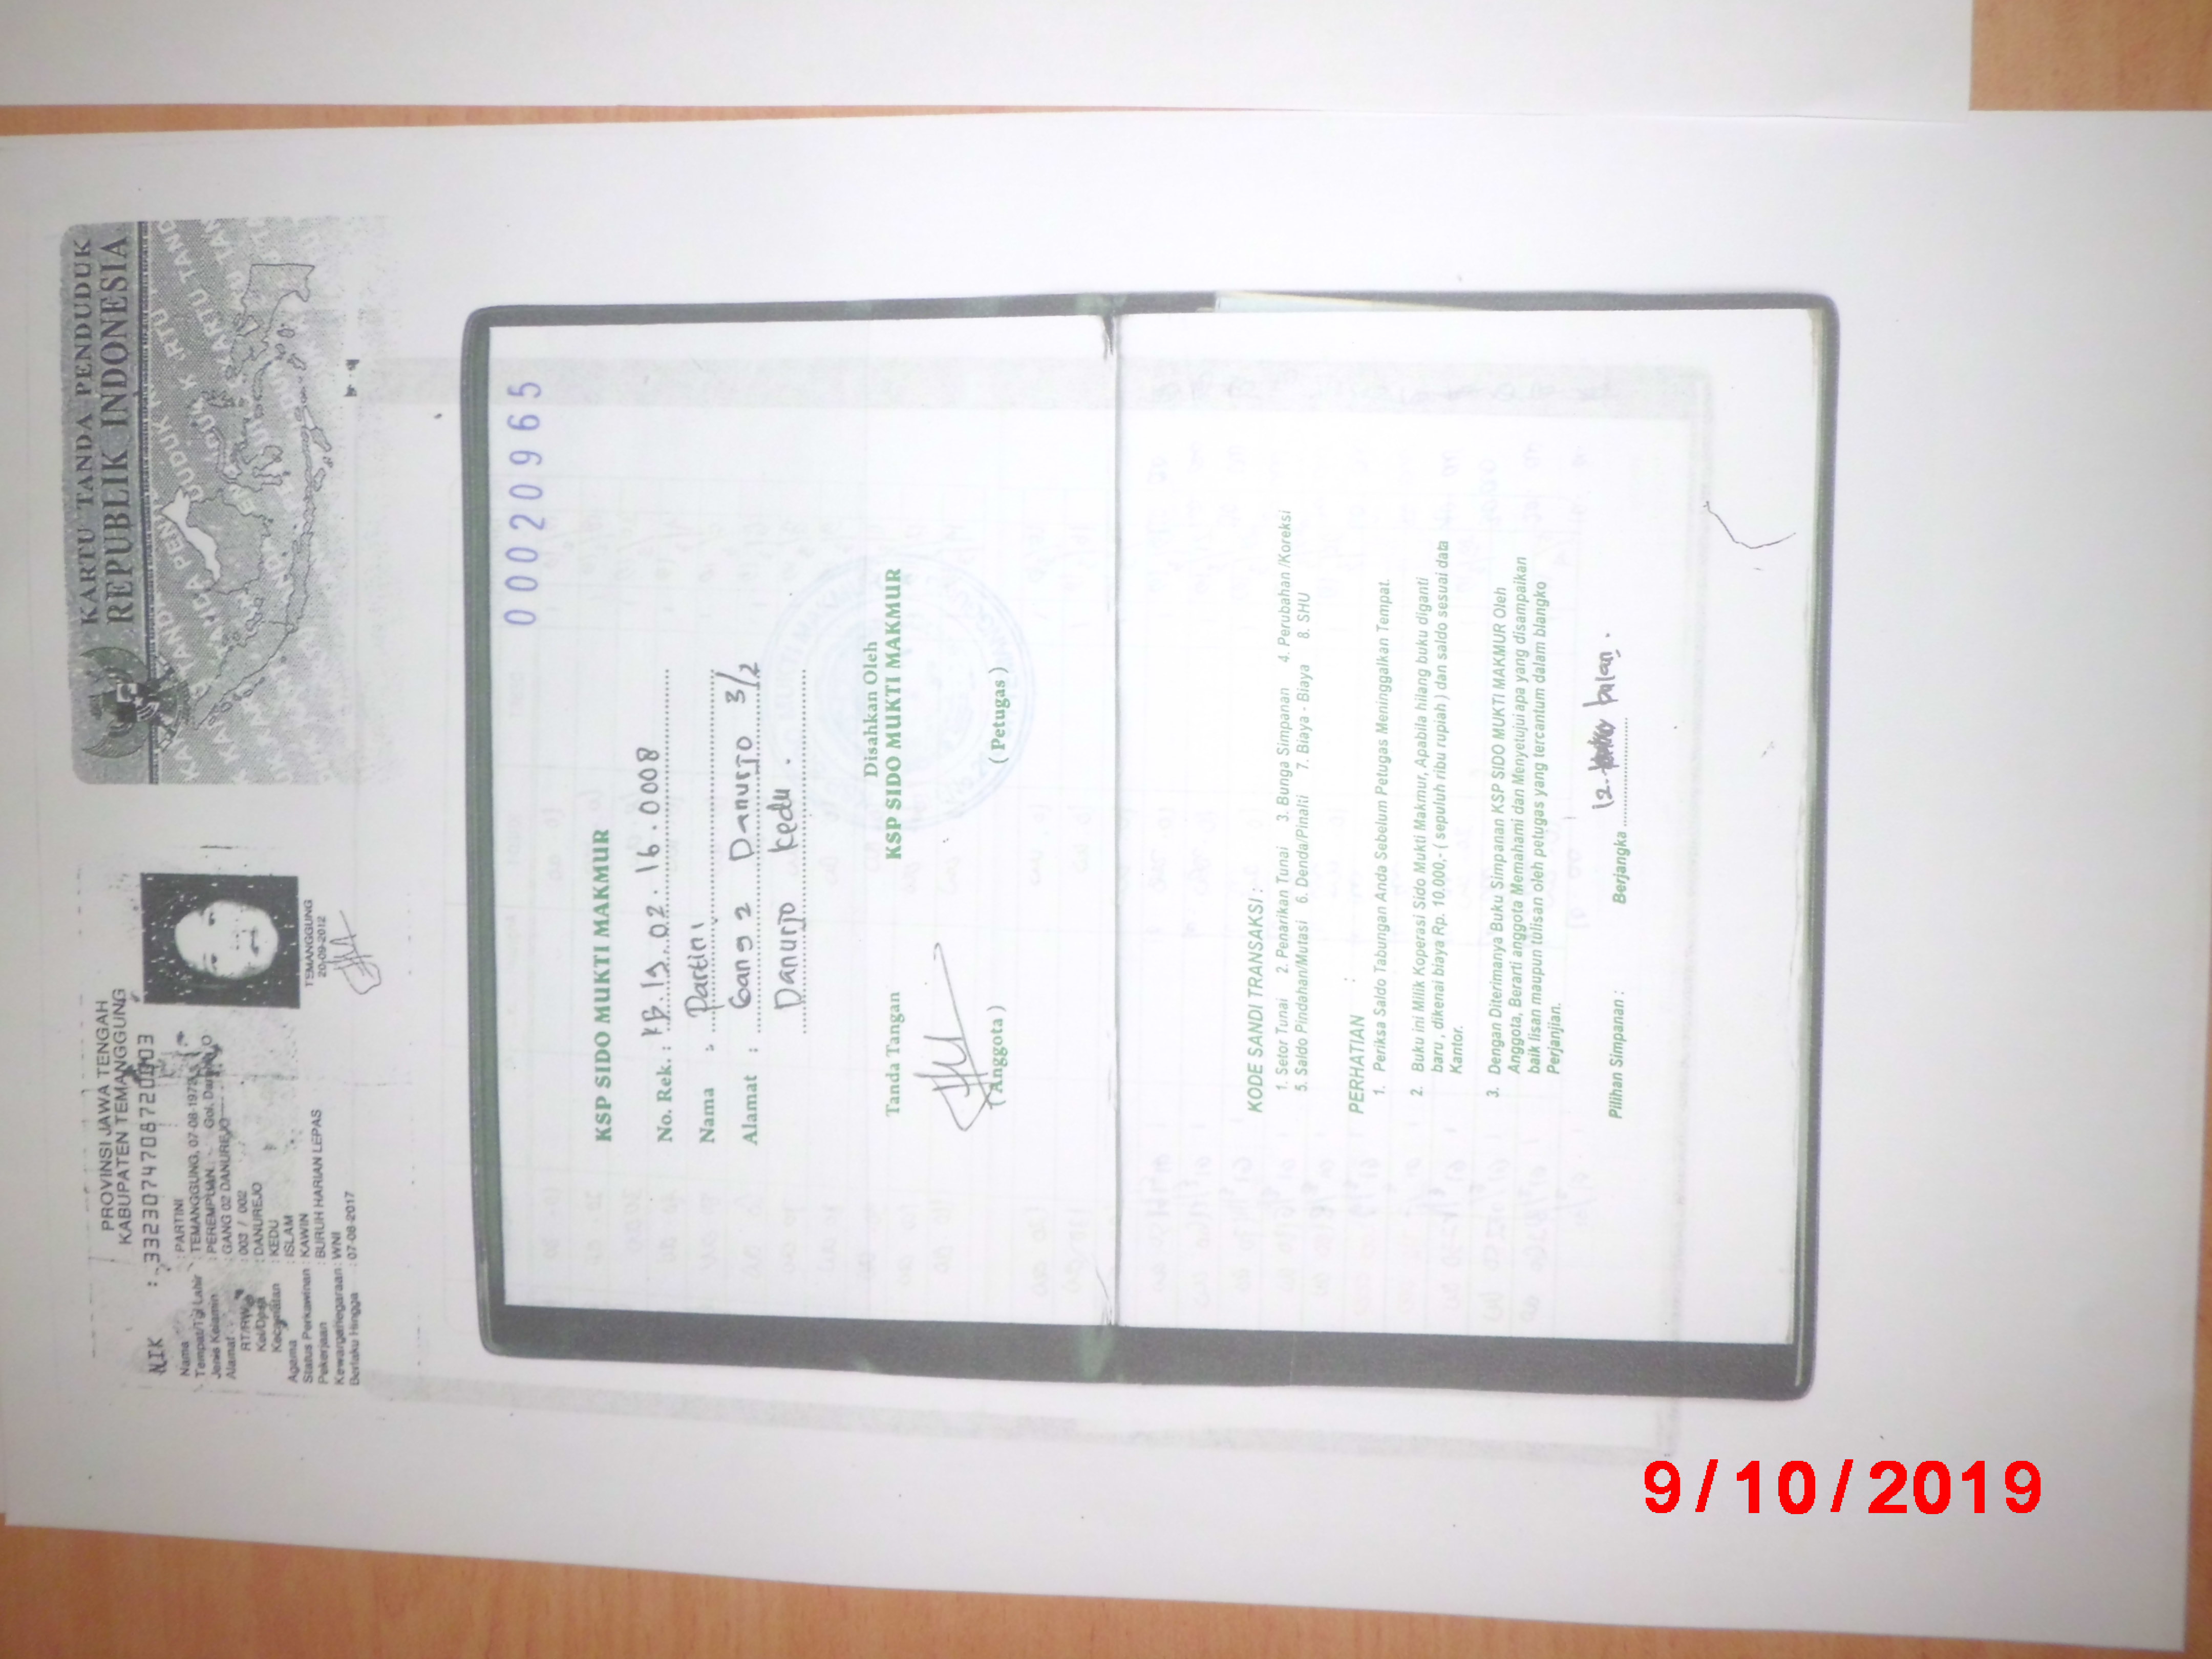 KARTU TANDA PENDUDUK
REPUBLIK INDONESIA
PROVINSI JAWA TENGAH
KABUPATEN TEMANGGUNG
NIK :
Nama : PARTINI
Tempat/Tgl Lahir : TEMANGGUNG, 07-08-1972
Jenis Kelamin : PEREMPUAN Gol. Darah : O
Alamat : GANG 02 DANUREJO
RT/RW : 003 / 002
Kel/Desa : DANUREJO
Kecamatan : KEDU
Agama : ISLAM
Status Perkawinan : KAWIN
Pekerjaan : BURUH HARIAN LEPAS
Kewarganegaraan : WNI
Berlaku Hingga : 07-08-2017
TEMANGGUNG
20-09-2012
00020965
KSP SIDO MUKTI MAKMUR
No. Rek. : KB.19.02.16.0008
Nama : Partini
Alamat : Gang 2 Danurjo 3/2
Danurjo Kedu.
Disahkan Oleh
Tanda Tangan KSP SIDO MUKTI MAKMUR
( Anggota ) ( Petugas )
KODE SANDI TRANSAKSI :
1. Setor Tunai 2. Penarikan Tunai 3. Bunga Simpanan 4. Perubahan /Koreksi
5. Saldo Pindahan/Mutasi 6. Denda/Pinalti 7. Biaya - Biaya 8. SHU
PERHATIAN :
1. Periksa Saldo Tabungan Anda Sebelum Petugas Meninggalkan Tempat.
2. Buku ini Milik Koperasi Sido Mukti Makmur, Apabila hilang buku diganti
baru , dikenai biaya Rp. 10.000,- ( sepuluh ribu rupiah ) dan saldo sesuai data
Kantor.
3. Dengan Diterimanya Buku Simpanan KSP SIDO MUKTI MAKMUR Oleh
Anggota, Berarti anggota Memahami dan Menyetujui apa yang disampaikan
baik lisan maupun tulisan oleh petugas yang tercantum dalam blangko
Perjanjian.
Pilihan Simpanan : Berjangka 12 bulan.
9/10/2019